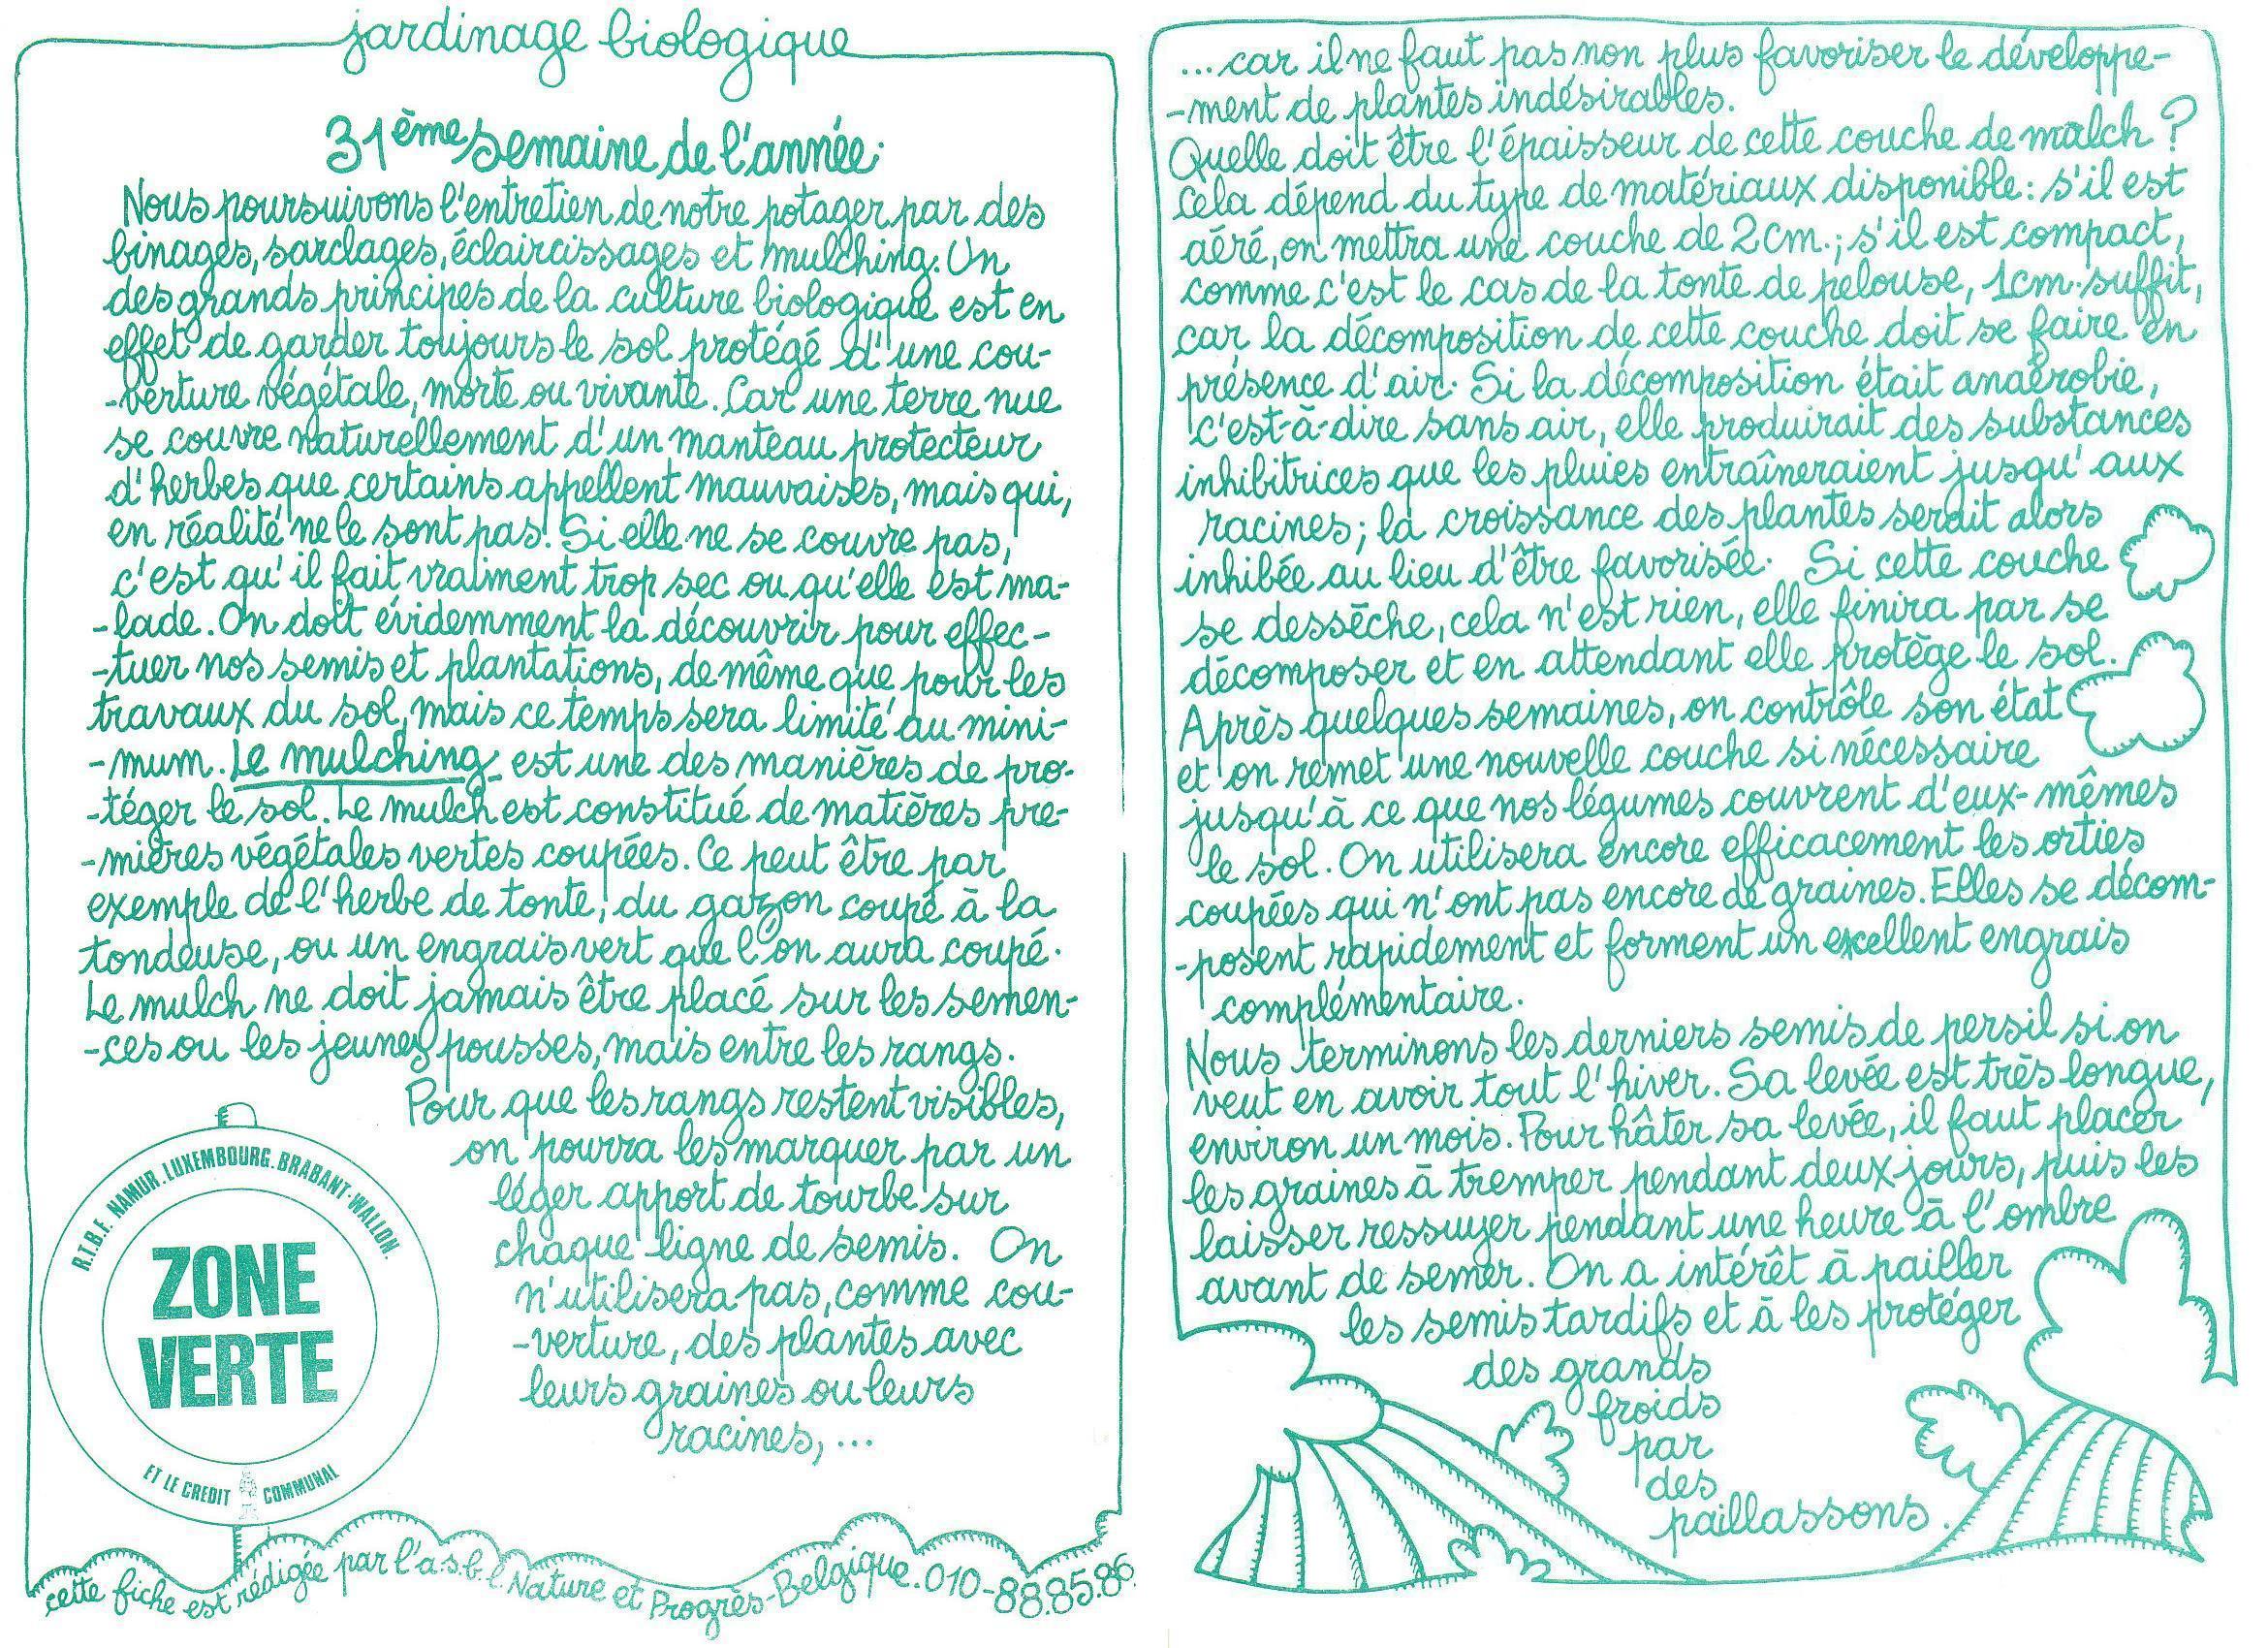 jardinage biologique
31ème semaine de l'année.
Nous poursuivons l'entretien de notre potager par des
binages, sarclages, éclaircissages et mulching. Un
des grands principes de la culture biologique est en
effet de garder toujours le sol protégé d'une cou-
-verture végétale, morte ou vivante. Car une terre nue
se couvre naturellement d'un manteau protecteur
d'herbes que certains appellent mauvaises, mais qui,
en réalité ne le sont pas. Si elle ne se couvre pas,
c'est qu'il fait vraiment trop sec ou qu'elle est ma-
-lade. On doit évidemment la découvrir pour effec-
-tuer nos semis et plantations, de même que pour les
travaux du sol, mais ce temps sera limité au mini-
-mum. Le mulching est une des manières de pro-
-téger le sol. Le mulch est constitué de matières pre-
-mières végétales vertes coupées. Ce peut être par
exemple de l'herbe de tonte, du gazon coupé à la
tondeuse, ou un engrais vert que l'on aura coupé.
Le mulch ne doit jamais être placé sur les semen-
-ces ou les jeunes pousses, mais entre les rangs.
Pour que les rangs restent visibles,
on pourra les marquer par un
léger apport de tourbe sur
chaque ligne de semis. On
n'utilisera pas, comme cou-
-verture, des plantes avec
leurs graines ou leurs
racines, ...
R.T.B.F. NAMUR. LUXEMBOURG. BRABANT-WALLON.
ZONE
VERTE
ET LE CREDIT COMMUNAL
cette fiche est rédigée par l'a.s.b.l. Nature et Progrès-Belgique. 010-88.85.86.
...car il ne faut pas non plus favoriser le développe-
-ment de plantes indésirables.
Quelle doit être l'épaisseur de cette couche de mulch ?
Cela dépend du type de matériaux disponible: s'il est
aéré, on mettra une couche de 2cm.; s'il est compact,
comme c'est le cas de la tonte de pelouse, 1cm. suffit,
car la décomposition de cette couche doit se faire en
présence d'air. Si la décomposition était anaérobie,
c'est-à-dire sans air, elle produirait des substances
inhibitrices que les pluies entraîneraient jusqu'aux
racines; la croissance des plantes serait alors
inhibée au lieu d'être favorisée. Si cette couche
se dessèche, cela n'est rien, elle finira par se
décomposer et en attendant elle protège le sol.
Après quelques semaines, on contrôle son état
et on remet une nouvelle couche si nécessaire
jusqu'à ce que nos légumes couvrent d'eux-mêmes
le sol. On utilisera encore efficacement les orties
coupées qui n'ont pas encore de graines. Elles se décom-
-posent rapidement et forment un excellent engrais
complémentaire.
Nous terminons les derniers semis de persil si on
veut en avoir tout l'hiver. Sa levée est très longue,
environ un mois. Pour hâter sa levée, il faut placer
les graines à tremper pendant deux jours, puis les
laisser ressuyer pendant une heure à l'ombre
avant de semer. On a intérêt à pailler
les semis tardifs et à les protéger
des grands
froids
par
des
paillassons.